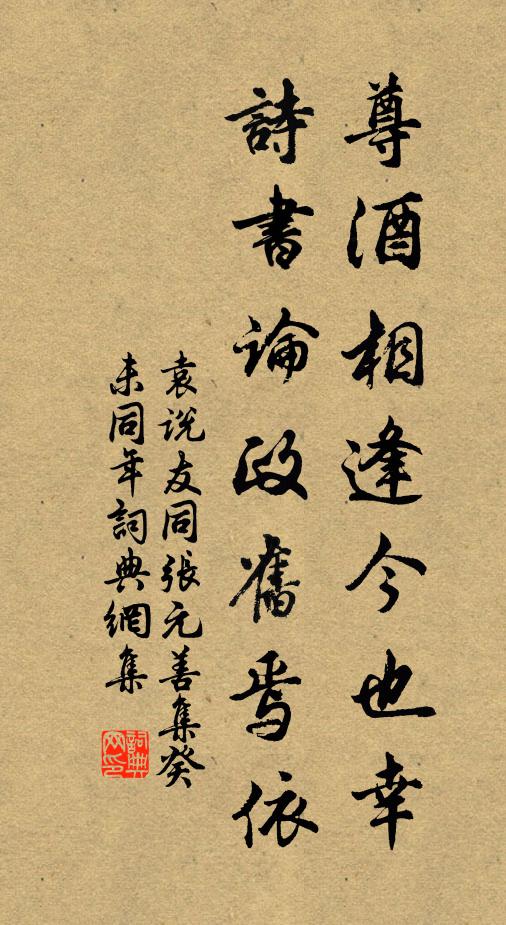 尊酒相逢今也幸
詩書論政舊焉依
袁說友同張元善集癸
未同年詞典網集
詞典
网印